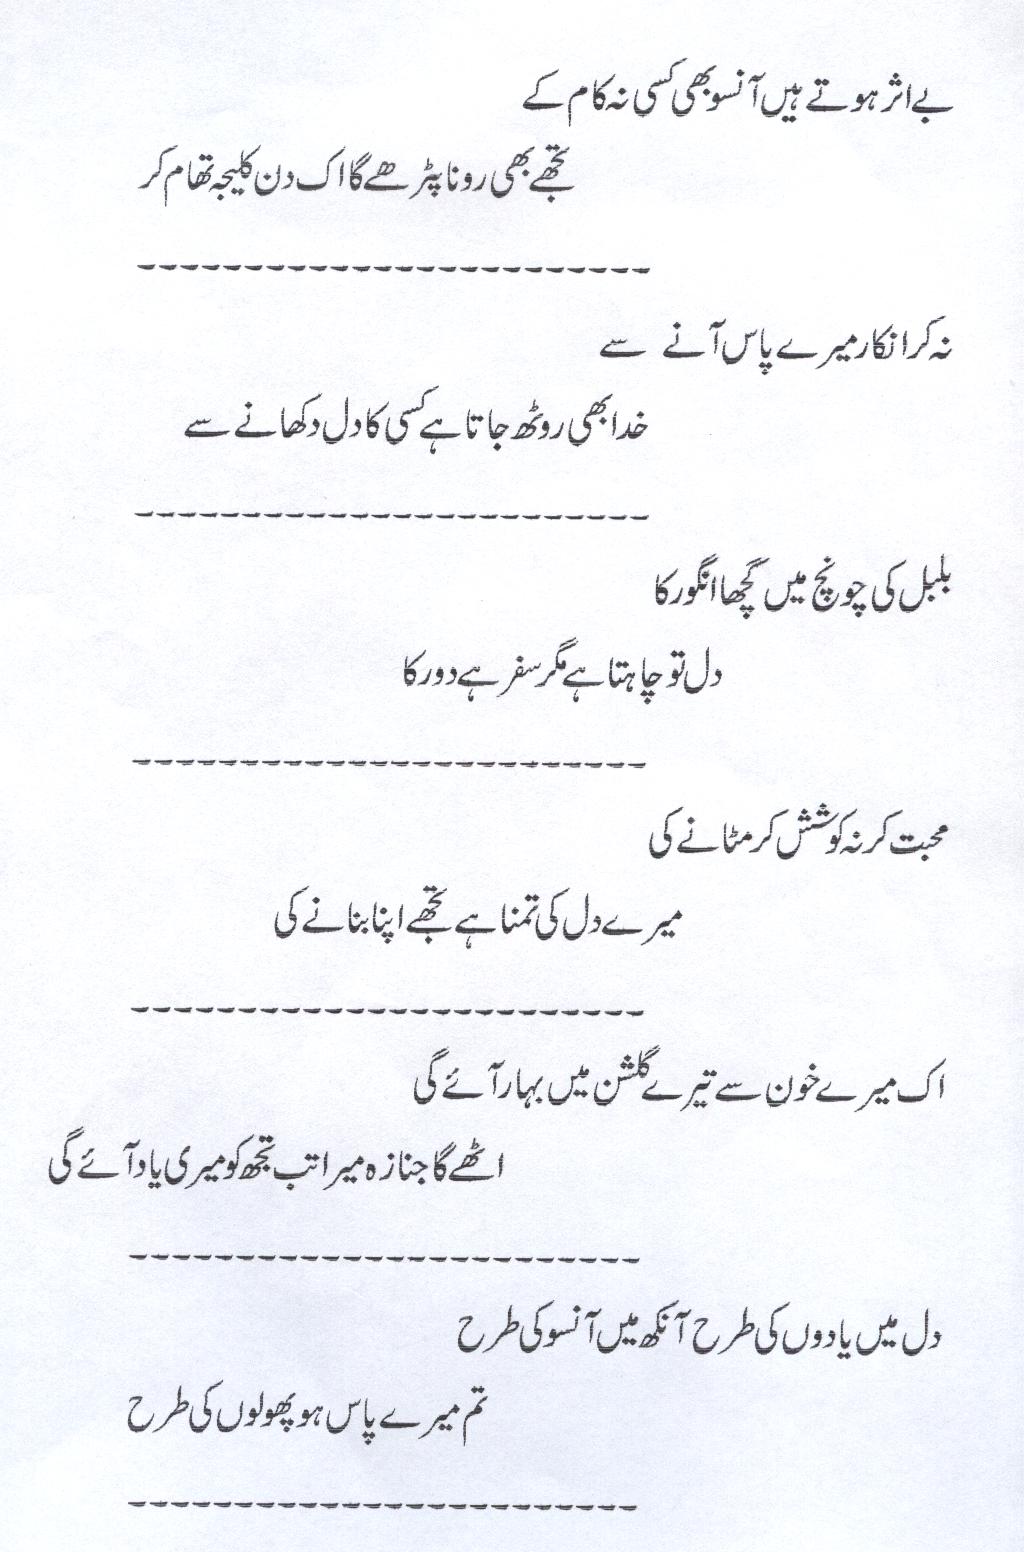 بے اثر ہوتے ہیں آنسو بھی کسی نہ کام کے
تجھے بھی رونا پٹرھے گا اک دن کلیجہ تھام کر
------------------------
نہ کر انکار میرے پاس آنے سے
خدا بھی روٹھ جاتا ہے کسی کا دل دکھانے سے
------------------------
بلبل کی چونچ میں گچھا انگور کا
دل تو چاہتا ہے مگر سفر ہے دور کا
------------------------
محبت کر نہ کوشش کر مٹانے کی
میرے دل کی تمنا ہے تجھے اپنا بنانے کی
------------------------
اک میرے خون سے تیرے گلشن میں بہار آئے گی
اٹھے گا جنازہ میرا تب تجھ کو میری یاد آئے گی
------------------------
دل میں یادوں کی طرح آنکھ میں آنسو کی طرح
تم میرے پاس ہو پھولوں کی طرح
------------------------